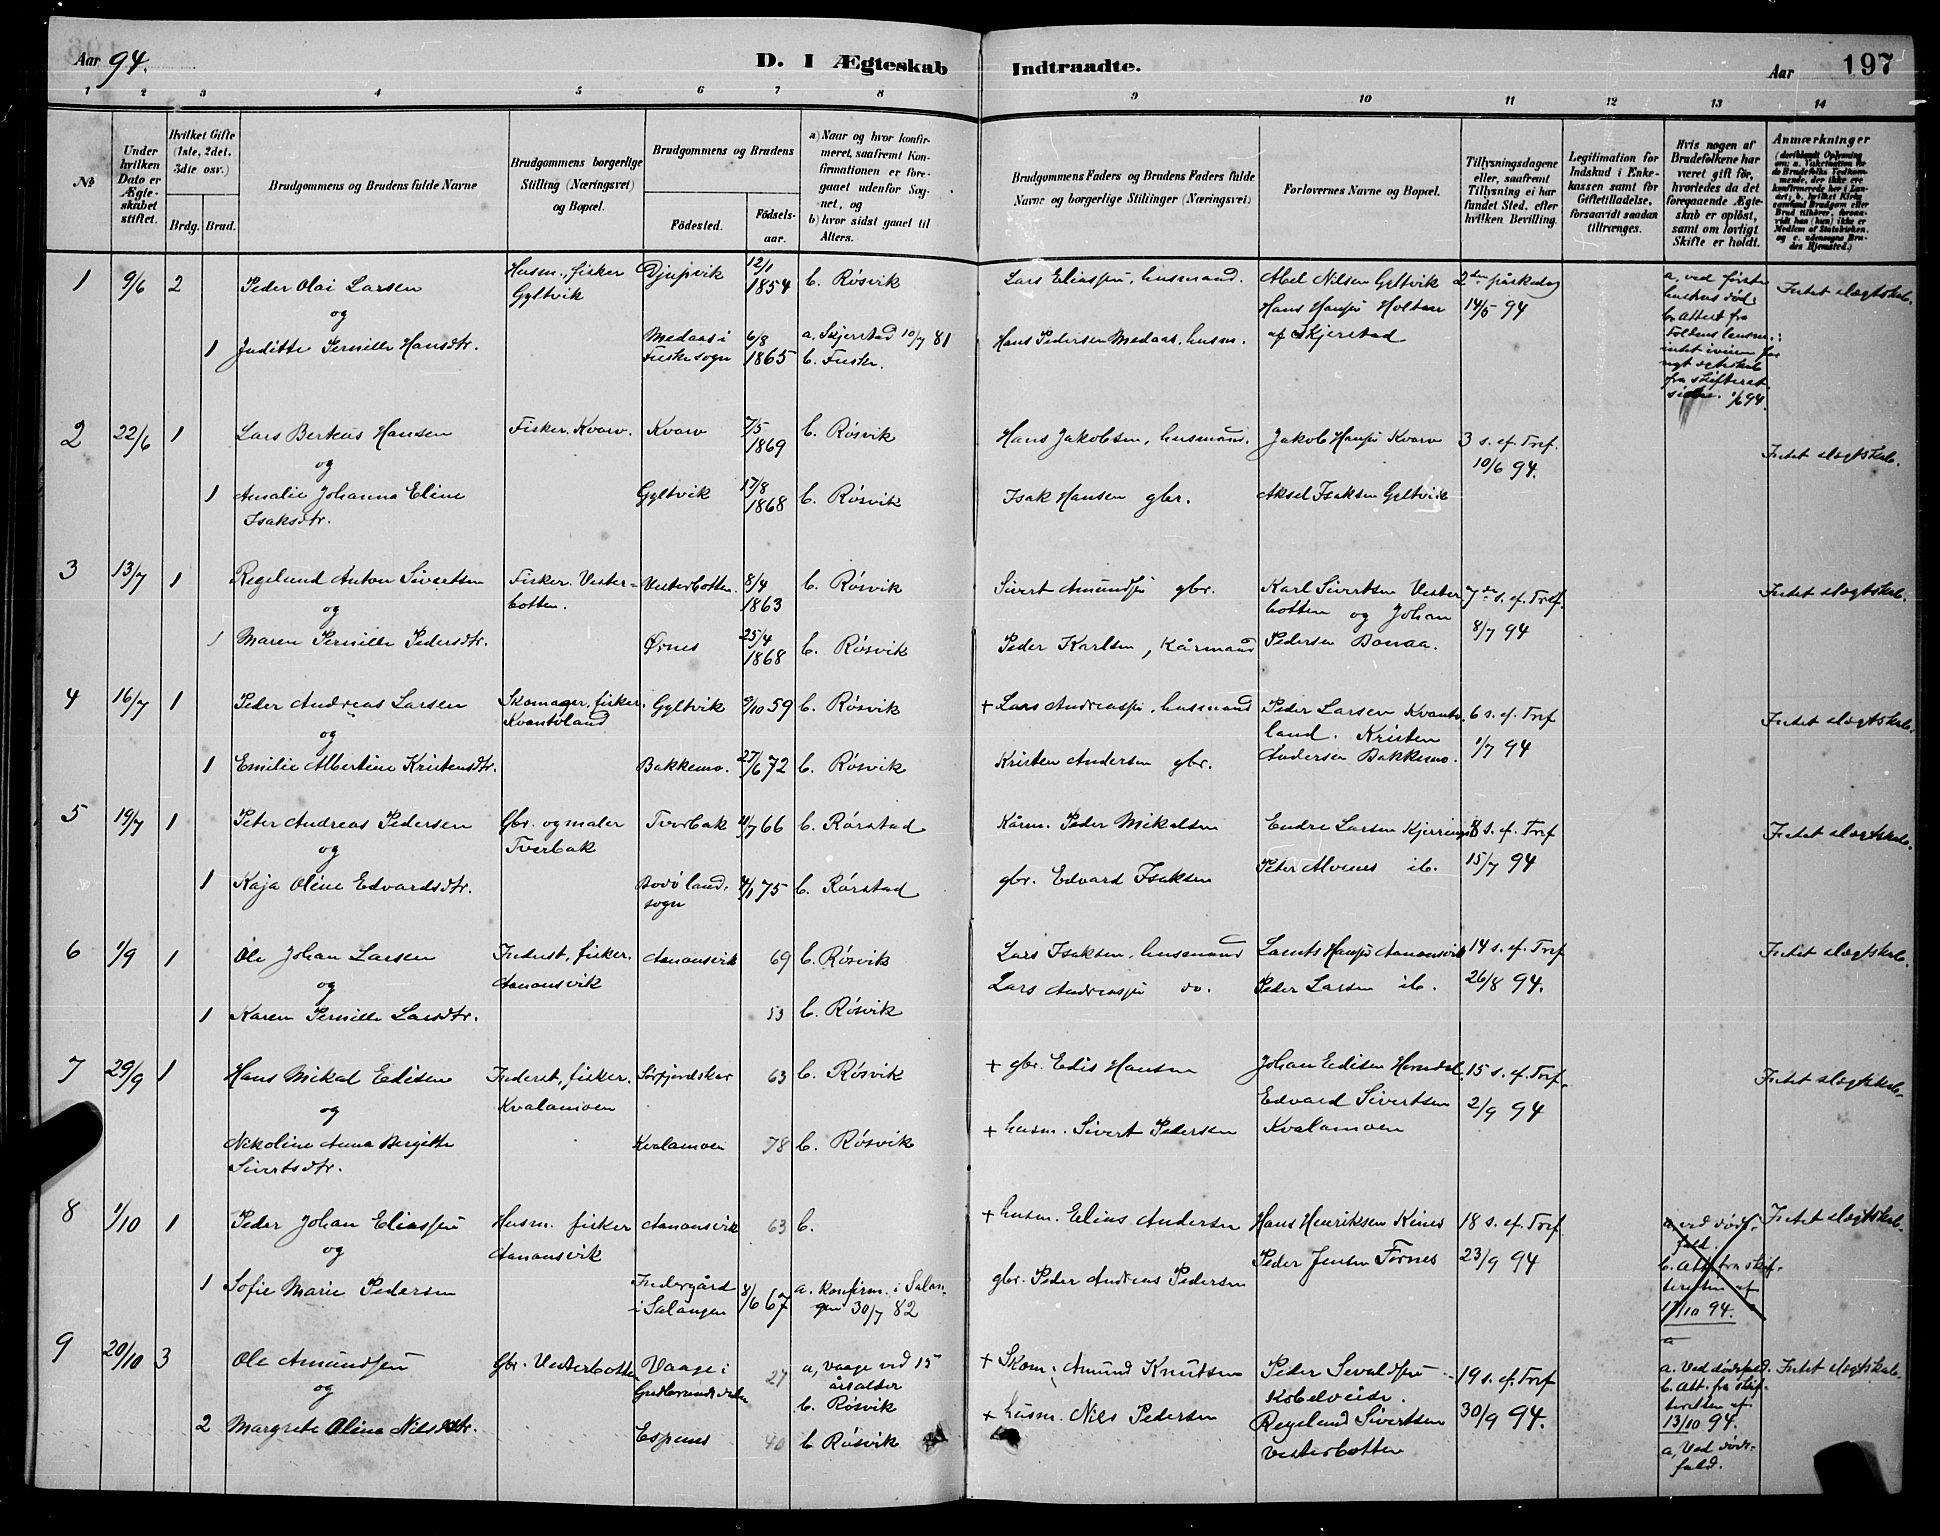 Aar 94.
D. I Ægteskab Indtraadte.
Aar 197
1 2 3 4 5 6 7 8 9 10 11 12 13 14
No
Under hvilken Dato er Ægteskabet stiftet.
Hvilket Gifte (1ste, 2det, 3die osv.)
Brdg. Brud.
Brudgommens og Brudens fulde Navne
Brudgommens borgerlige Stilling (Næringsvei) og Bopæl.
Brudgommens og Brudens
Födested. Födselsaar.
a) Naar og hvor konfirmeret, saafremt Konfirmationen er foregaaet udenfor Sognet, og
b) hvor sidst gaaet til Alters.
Brudgommens Faders og Brudens Faders fulde Navne og borgerlige Stillinger (Næringsvei)
Forlovernes Navne og Bopæl.
Tillysningsdagene eller, saafremt Tillysning ei har fundet Sted, efter hvilken Bevilling.
Legitimation for Indskud i Enkekassen samt for Giftetilladelse, forsaavidt saadan tiltrænges.
Hvis nogen af Brudefolkene har været gift för, hvorledes da det foregaaende Ægteskab er oplöst, samt om lovligt Skifte er holdt.
Anmærkninger
1 9/6 2 Peder Olai Larsen Husm., fisker Gyltvik Djupvik 12/1 1854 b. Røsvik Lars Eliassen, husmand. Abel Nilsen Gyltvik 2den påskedag
og Hans Hansen Holtan 14/5 94
1 Juditte Pernille Hansdtr. Medaas i Fuske sogn 6/8 1865 a. Skjerstad 10/7 81 b. Fuske. Hans Pedersen Medaas, husm. af Skjerstad
a, ved første hustrus død. b. Attest fra Foldens lensm.: intet iveien for nyt ægteskab fra skifterets side. 1/6 94.
Intet slægtskab.
2 22/6 1 Lars Berteus Hansen Fisker. Kvarv. Kvarv 7/5 1869 b. Røsvik Hans Jakobsen, husmand. Jakob Hansen Kvarv 3 s. ef. Tref. 10/6 94. Intet slægtskab.
og
1 Amalie Johanna Eline Isaksdtr. Gyltvik 17/8 1868 b. Røsvik Isak Hansen gbr. Aksel Isaksen Gyltvik
3 13/7 1 Regelund Anton Sivertsen Fisker. Vesterbotten. Vesterbotten. 8/4 1863 b. Røsvik Sivert Amundsen gbr. Karl Sivertsen Vesterbotten og Johan 7de s. ef. Tref. 8/7 94 Intet slægtskab.
og
1 Maren Pernille Pedersdtr. Ørnes 25/4 1868 b. Røsvik Peder Karlsen, Kårmand Pedersen Bonaa.
4 16/7 1 Peder Andreas Larsen Skomager, fisker. Kvantoland Gyltvik 9/10 59 b. Røsvik + Lars Andreassen, husmand Peder Larsen Kvantoland. Kristen 6 s. ef. Tref 1/7 94 Intet slægtskab.
og
1 Emilie Albertine Kristensdtr. Bakkemo. 27/6 72 b. Røsvik Kristen Andersen gbr. Andersen Bakkemo.
5 19/7 1 Peter Andreas Pedersen Gbr. og maler Tverbak Tverbak 4/7 66 b. Rørstad Kårm. Peder Mikalsen Endre Larsen Kjerringø 8 s. ef. Tref 15/7 94 Intet slægtskab.
og
1 Kaja Oline Edvardsdtr. Bodø landsogn 4/1 75 b. Rørstad gbr. Edvard Isaksen Peter Alvenes ib.
6 1/9 1 Ole Johan Larsen Inderst, fisker. Aanonsvik Aanonsvik 69 b. Røsvik Lars Isaksen, husmand Lamts Hansen Aanonsvik 14 s. ef. Tref 26/8 94. Intet slægtskab.
og Lars Andreassen do. Peder Larsen ib.
1 Karen Pernille Larsdtr. 53 b. Røsvik
7 29/9 1 Hans Mikal Edisen Inderst, fisker. Kvalamoen Sørfjordskar 63 b. Røsvik + gbr. Edis Hansen Johan Edisen Horndal. 15 s. ef. Tref. 2/9 94 Intet slægtskab.
og Edvard Sivertsen
Nikoline Anna Bergitte Sivertsdtr. Kvalamoen 78 b. Røsvik + husm. Sivert Pedersen Kvalamoen
8 1/10 1 Peder Johan Eliassen Husm. fisker Aanonsvik Aanonsvik 63 b. + husm. Elias Andersen Hans Henriksen Kines 18 s. ef. Tref 23/9 94 Intet slægtskab.
og Peder Jensen Fornes
1 Sofie Marie Pedersen Indergård i Salangen 8/6 67 a. konfirm. i Salangen 30/7 82 gbr. Peder Andreas Pedersen
a, ved dødsfald. b. Att. fra skifteretten af 13/10 94.
9 20/10 3 Ole Amundsen Gbr. Vesterbotten Vaage i Gudbrandsdalen 27 a, vaage ved 15 årsalder b. Røsvik + Skom. Amund Knutsen Peder Sevaldsen Kobelveide. 19 s. ef. Tref 30/9 94. Intet slægtskab.
og
2 Margrete Oline Nilsdatr. Espenes 40 b. Røsvik + husm. Nils Pedersen Regelund Sivertsen Vesterbotten
a. Ved dødsfald. b. Att. fra skifteretten af 13/10 94.
a, Ved dødsfald.